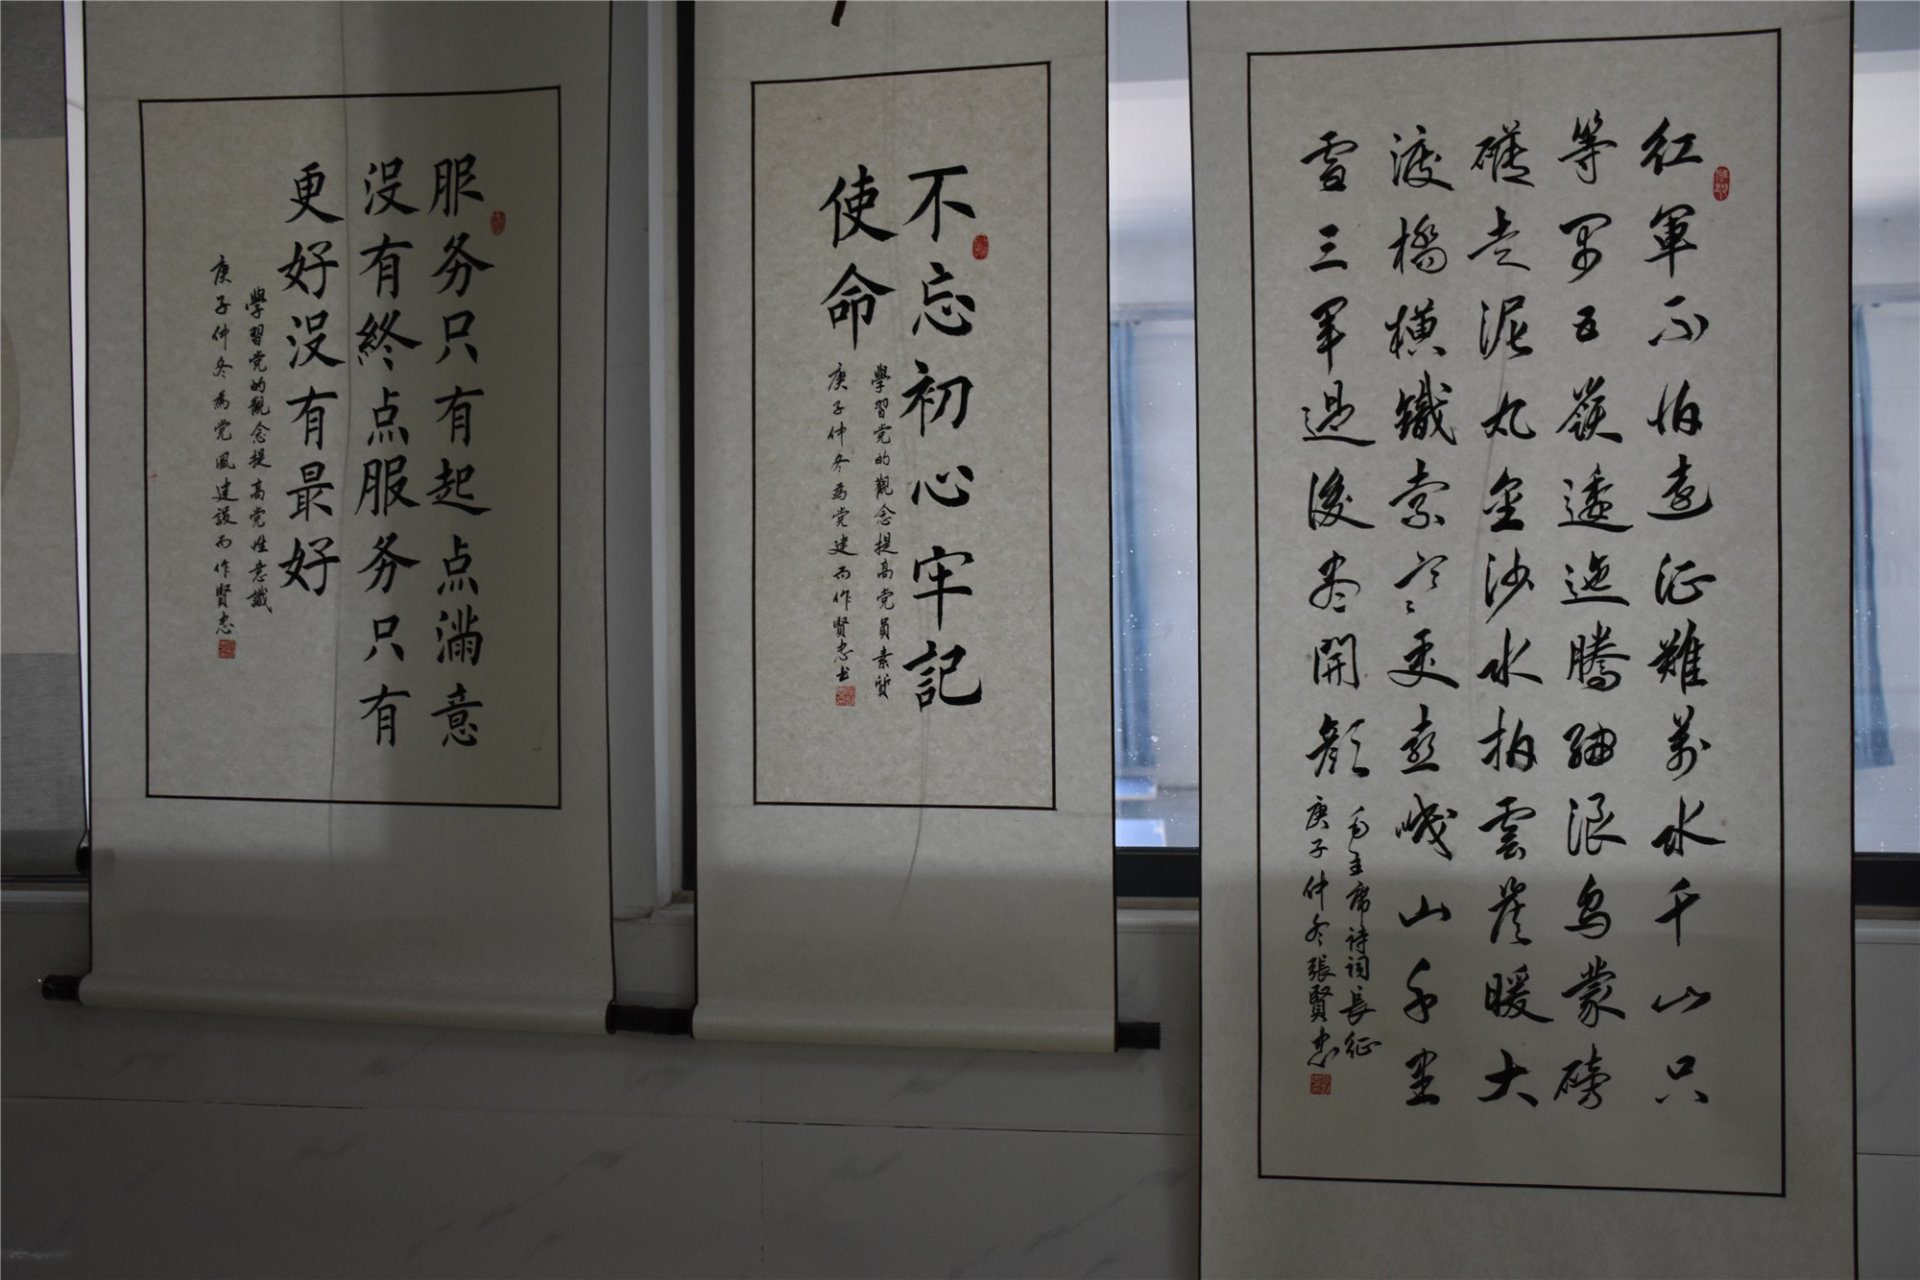 红軍不怕遠征難萬水千山只
等閑五嶺逶迤騰細浪烏蒙磅
礴走泥丸金沙水拍雲崖暖大
渡橋橫鐵索寒更喜岷山千里
雪三軍過後盡開顏
毛主席诗词長征
庚子仲冬張賢忠
不忘初心牢記
使命
學習党的觀念提高党員素質
庚子仲冬為党建而作賢忠书
服务只有起点滿意
没有終点服务只有
更好没有最好
學習党的觀念提高党性意識
庚子仲冬為党風建設而作賢忠